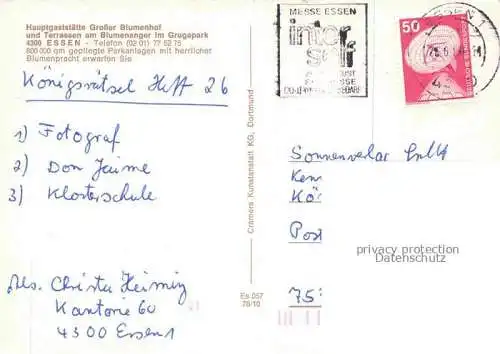 Hauptgaststätte Großer Blumenhof
und Terrassen am Blumenanger im Grugapark
4300 ESSEN - Telefon (02 01) 77 52 75
800 000 qm gepflegte Parkanlagen mit herrlicher
Blumenpracht erwarten Sie
Königsrätsel Heft 26
1) Fotograf
2) Don Jaime
3) Klosterschule
Abs. Christa
Kantorie 60
4300 Essen 1
Cramers Kunstanstalt KG, Dortmund
Es 057
78/10
MESSE ESSEN
inter
ESSEN 1
50
DEUTSCHE BUNDESPOST
Sonnenverlag GmbH
Ken
Kö
Post
75
privacy protection
Datenschutz